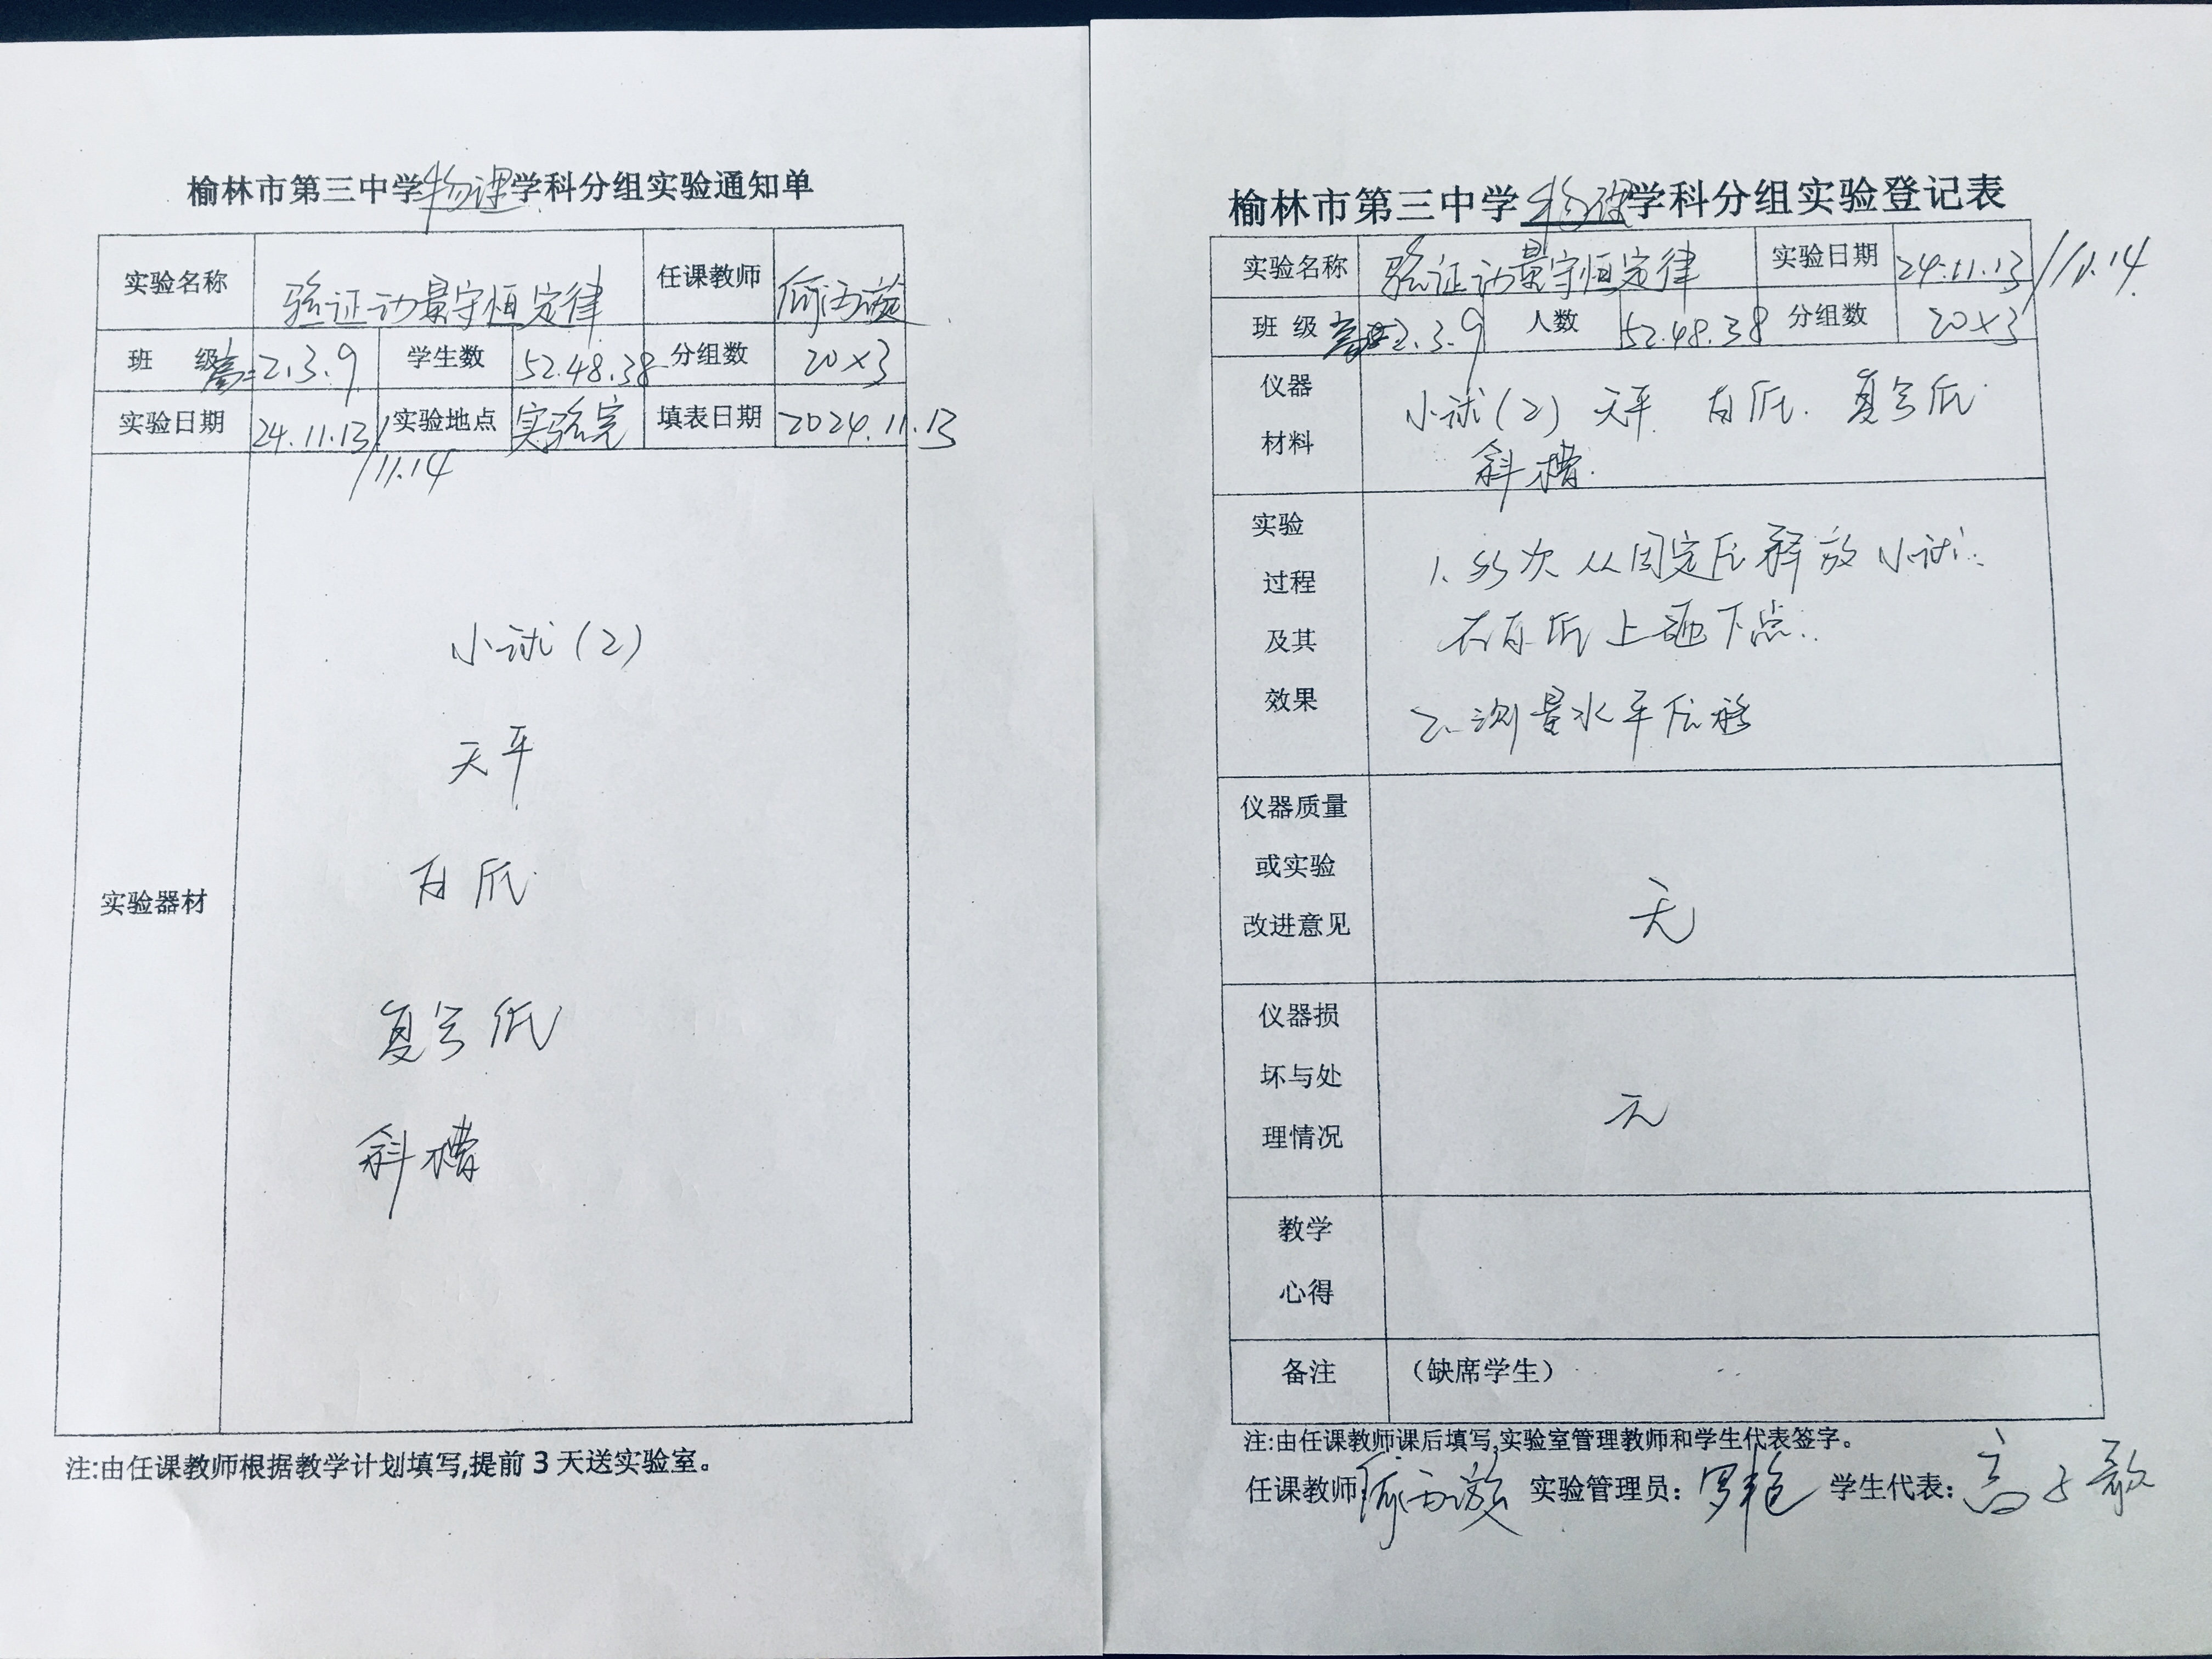 榆林市第三中学物理学科分组实验通知单
实验名称 验证动量守恒定律 任课教师
班 级 高二2.3.9 学生数 52.48.38 分组数 20×3
实验日期 24.11.13/11.14 实验地点 实验室 填表日期 2024.11.13
实验器材
小球(2)
天平
白纸
复写纸
斜槽
注:由任课教师根据教学计划填写,提前3天送实验室。
榆林市第三中学物理学科分组实验登记表
实验名称 验证动量守恒定律 实验日期 24.11.13/11.14
班 级 高二2.3.9 人数 52.48.38 分组数 20×3
仪器材料 小球(2) 天平 白纸. 复写纸
斜槽.
实验过程及其效果
1. 多次从固定位释放小球.
在白纸上砸下点.
2. 测量水平位移
仪器质量或实验改进意见 无
仪器损坏与处理情况 无
教学心得
备注 (缺席学生)
注:由任课教师课后填写,实验室管理教师和学生代表签字。
任课教师: 实验管理员: 罗艳 学生代表: 高